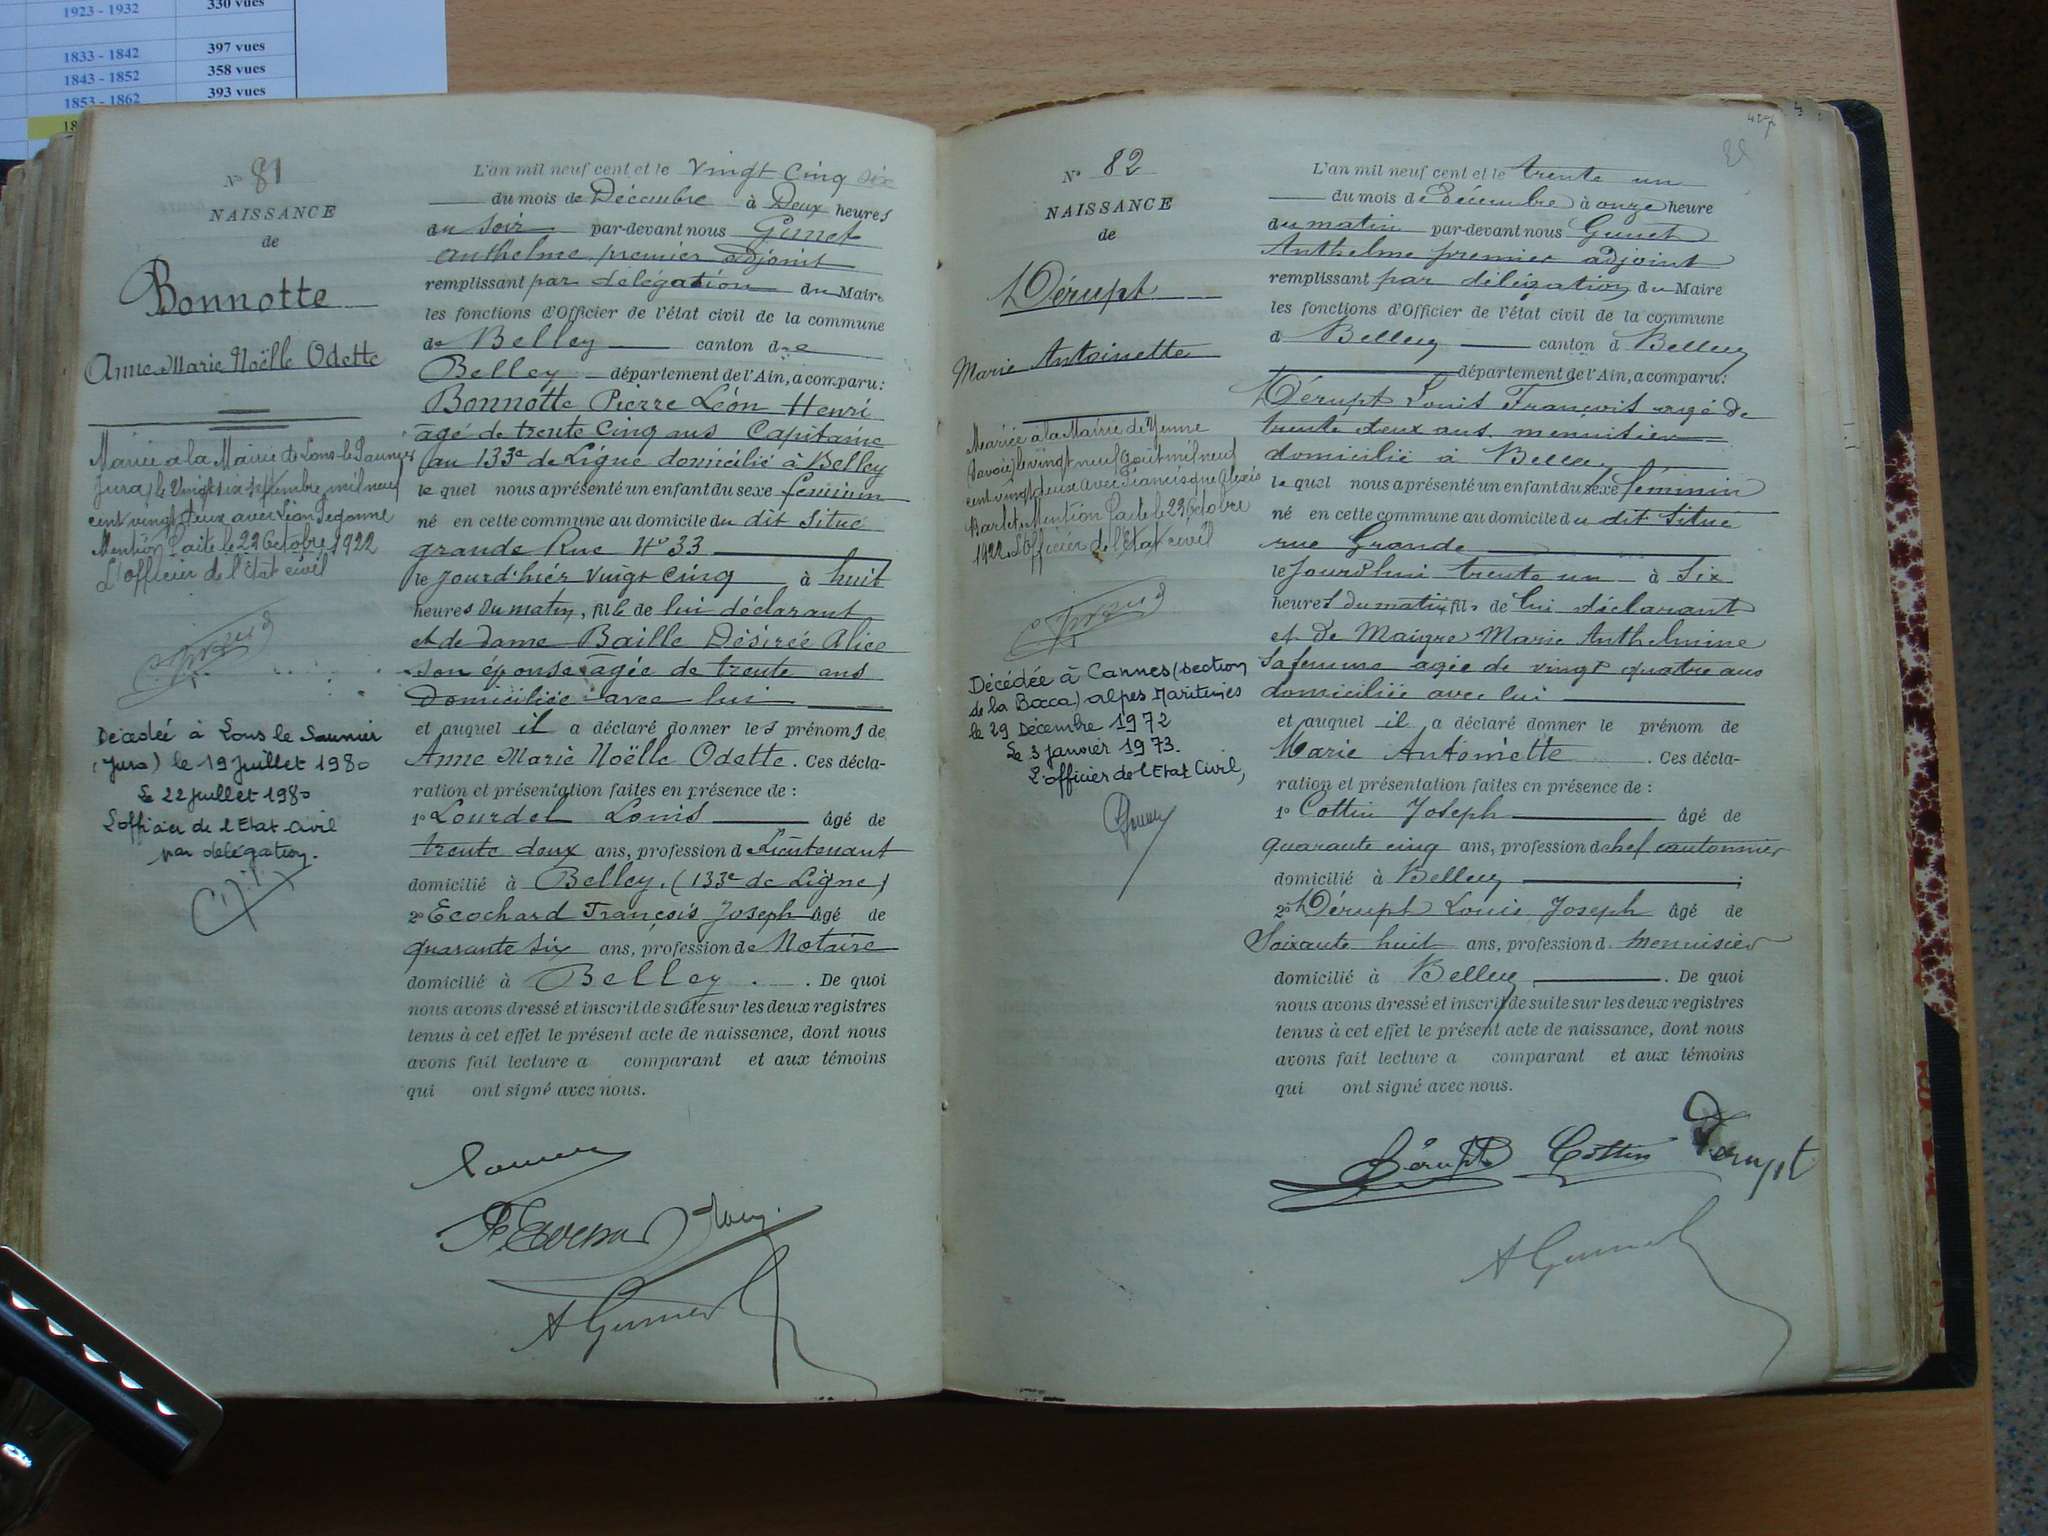 1923 - 1932 330 vues
1833 - 1842 397 vues
1843 - 1852 358 vues
1853 - 1862 393 vues
N° 81
NAISSANCE
de
Bonnotte
Anne Marie Noëlle Odette
Mariée à la Mairie de Lons-le-Saunier
Jura, le vingt six septembre mil neuf
cent vingt deux avec Léon
Mention faite le 29 Octobre 1922
L'officier de l'état civil
Décédée à Lons le Saunier
(Jura) le 19 juillet 1980
Le 22 juillet 1980
L'officier de l'Etat Civil
par délégation.
L'an mil neuf cent et le vingt cinq six
du mois de Décembre à Deux heures
du soir par-devant nous Gunet
Anthelme premier adjoint
remplissant par délégation du Maire
les fonctions d'Officier de l'état civil de la commune
de Belley canton de
Belley département de l'Ain, a comparu:
Bonnotte Pierre Léon Henri
âgé de trente cinq ans Capitaine
au 133e de Ligne domicilié à Belley
le quel nous a présenté un enfant du sexe féminin
né en cette commune au domicile du dit situé
grande Rue N° 33
le jourd'hier vingt cinq à huit
heures du matin, fille de lui déclarant
et de dame Baille Désirée Alice
son épouse agée de trente ans
domiciliée avec lui
et auquel il a déclaré donner les prénoms de
Anne Marie Noëlle Odette. Ces décla-
ration et présentation faites en présence de :
1° Lourdel Louis âgé de
trente deux ans, profession de Lieutenant
domicilié à Belley. (133e de Ligne)
2° Ecochard François Joseph âgé de
quarante six ans, profession de Notaire
domicilié à Belley. De quoi
nous avons dressé et inscrit de suite sur les deux registres
tenus à cet effet le présent acte de naissance, dont nous
avons fait lecture a comparant et aux témoins
qui ont signé avec nous.
A Gunet
N° 82
NAISSANCE
de
Dérupt
Marie Antoinette
Mariée à la Mairie de Yenne
Savoie, le vingt neuf août mil neuf
cent vingt deux avec Francisque Alexis
Barlet. Mention faite le 29 Octobre
1922. L'officier de l'état civil
Décédée à Cannes (section
de la Bocca) Alpes Maritimes
le 29 Décembre 1972
Le 3 janvier 1973.
L'officier de l'Etat Civil,
L'an mil neuf cent et le trente un
du mois de Décembre à onze heure
du matin par-devant nous Gunet
Anthelme premier adjoint
remplissant par délégation du Maire
les fonctions d'Officier de l'état civil de la commune
d Belley canton d Belley
département de l'Ain, a comparu:
Dérupt Louis François agé de
trente deux ans menuisier
domicilié à Belley
le quel nous a présenté un enfant du sexe féminin
né en cette commune au domicile du dit situé
rue Grande
le jourd'hui trente un à six
heures du matin fils de lui déclarant
et de Maigre Marie Anthelmine
sa femme agée de vingt quatre ans
domiciliée avec lui
et auquel il a déclaré donner le prénom de
Marie Antoinette. Ces décla-
ration et présentation faites en présence de :
1° Cottin Joseph âgé de
quarante cinq ans, profession d chef cantonnier
domicilié à Belley
2° Dérupt Louis Joseph âgé de
Soixante huit ans, profession d. menuisier
domicilié à Belley. De quoi
nous avons dressé et inscrit de suite sur les deux registres
tenus à cet effet le présent acte de naissance, dont nous
avons fait lecture a comparant et aux témoins
qui ont signé avec nous.
Dérupt Cottin Derupt
A Gunet